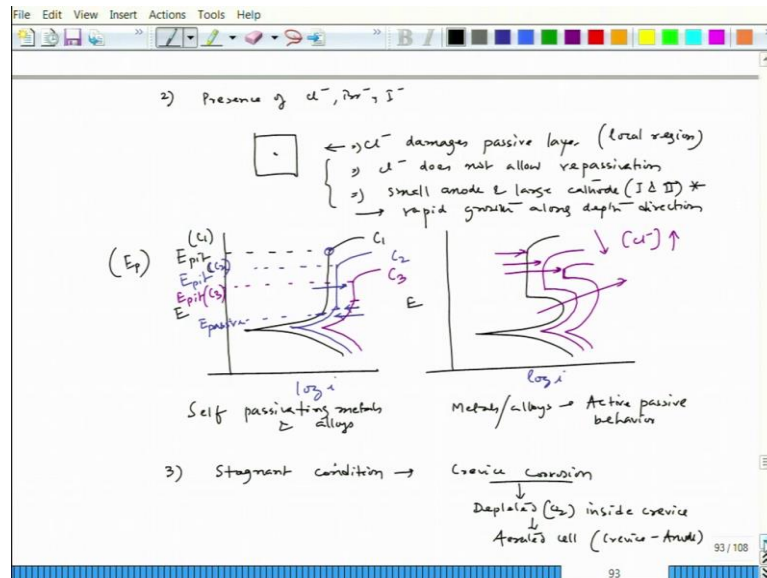 File Edit View Insert Actions Tools Help
B I
2) Presence of Cl⁻, Br⁻, I⁻
← ⇒) Cl⁻ damages passive layer (local region)
⇒) Cl⁻ does not allow repassivation
⇒) small anode & large cathode (I & II) *
→ rapid growth along depth direction
(Ep)
(C1)
Epit
Epit (C2)
Epit (C3)
E
Epassive
C1
C2
C3
log i
Self passivating metals
& alloys
[Cl⁻] ↑
E
log i
Metals/alloys → Active passive
behavior
3) Stagnant condition → Crevice corrosion
↓
Depleted (O2) inside crevice
↓
Aerated cell (Crevice - Anode)
93 / 108
93